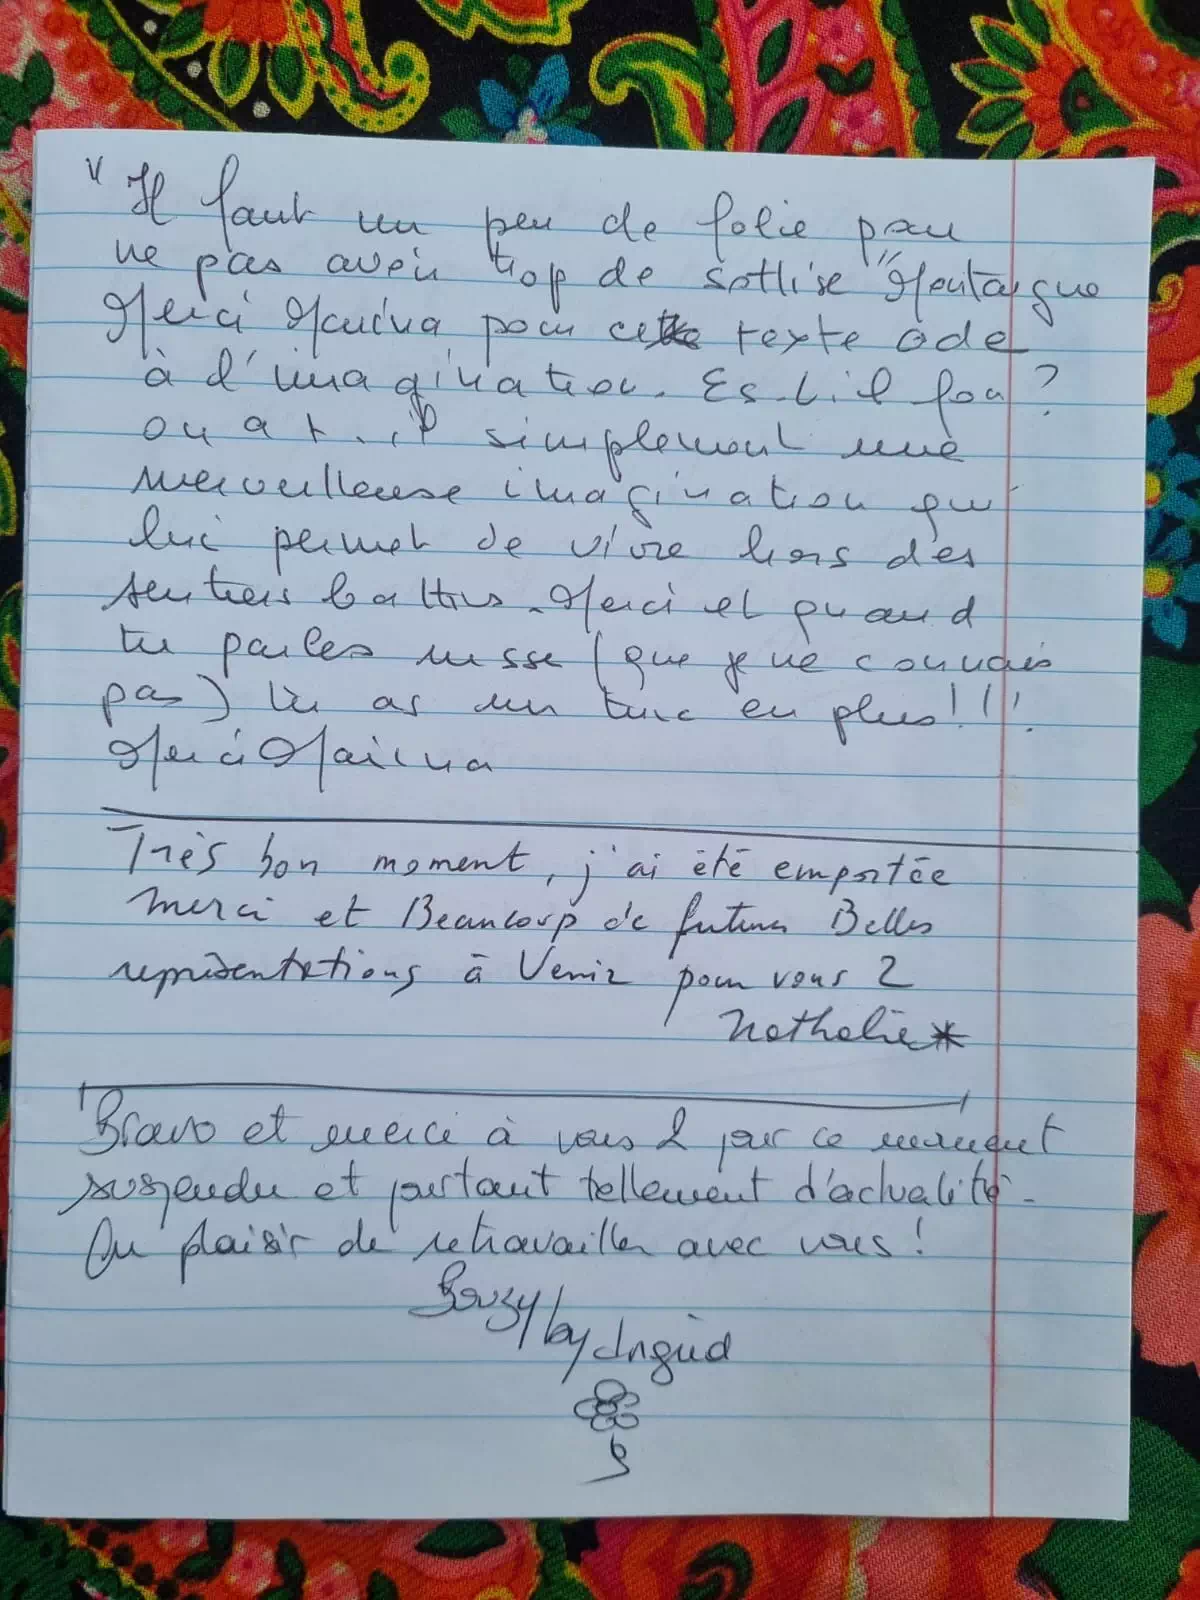 "Il faut un peu de folie pour
ne pas avoir trop de sottise" Montaigne
Merci Marina pour cette texte ode
à l'imagination. Est-il fou?
ou a t-il simplement une
merveilleuse imagination qui
lui permet de vivre hors des
sentiers battus. Merci et quand
tu parles russe (que je ne connais
pas) tu as un truc en plus!!!
Merci Marina
Très bon moment, j'ai été emportée
merci et Beaucoup de futures Belles
représentations à Venir pour vous 2
Nathalie*
Bravo et merci à vous 2 pour ce moment
suspendu et pourtant tellement d'actualité.
Au plaisir de retravailler avec vous!
Bouzy/by Ingrid